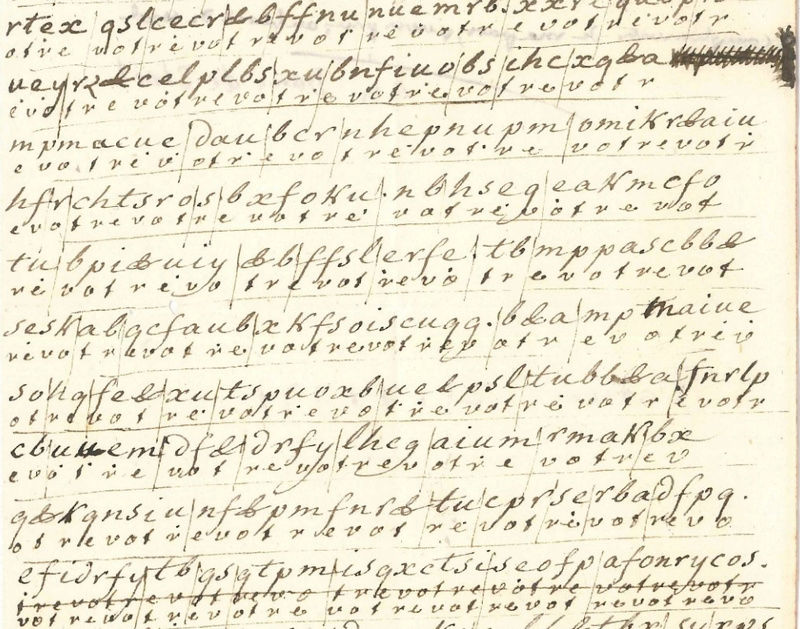 rtex qslcecr&bffnu nuemrb.xxre
otre votrevotrevotre votrevotr
ueyrz&celplbsxubnfiuobs ihcxq&a
evotrevotrevotrevotrevotrevotr
mpmacuc dau bcr nhepnupm omikr&aiu
evotrevotrevotrevotre votrevotr
hfrchtsrosbxfoku.nbhseqeakmcfo
evotrevotrevotrevotrevotrevot
tubpi&uiy &bffslerfe.tbmppascbb&
revotrevotrevotrevotrevotrevot
seskabqcfaubxkfsoiscuqq.b&ampmaiue
revotrevotrevotrevotrevotrevotrev
sohqfe&xutspuoxbue&psltubb&a fnrlp
otrevotrevotrevotrevotrevotrevotr
cbuuem df& drfylhcqaiumrmakbx
evotrevotrevotrevotrevotrev
q&kqnsiunf&pmfnr&tucprserbadfpq.
otrevotrevotrevotrevotrevotrevo
efidrfytbqsqtpmisqxctsiseofpafonrycos.
trevotrevotrevotrevotrevotrevotr
votrevotrevotrevotrevotrevotrevo